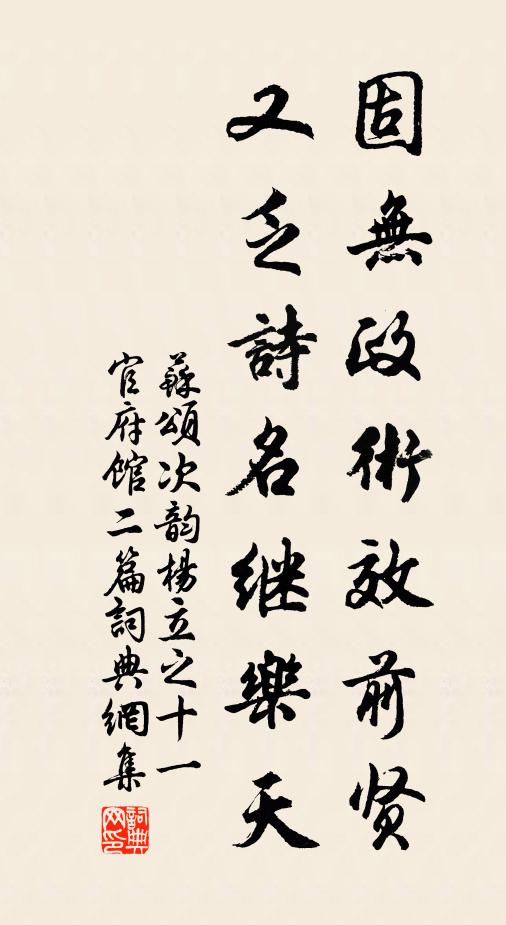 固無政術效前贤
又乏詩名继樂天
蘇頌次韵楊立之十一
官府館二篇詞典網集
詞典网印